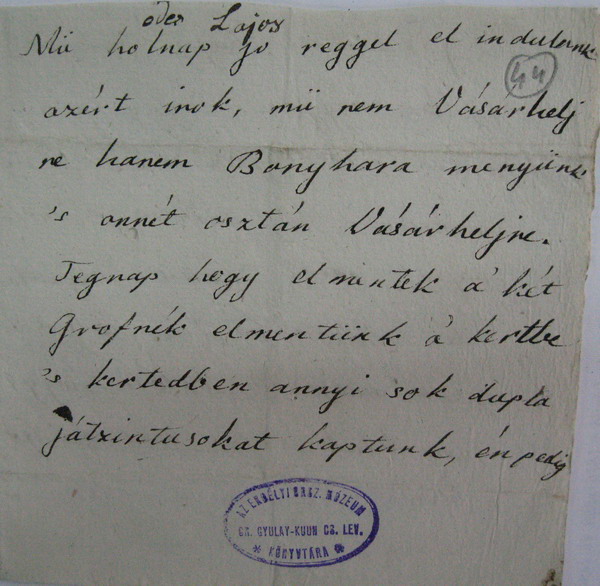 édes Lajos
Mü holnap jo reggel el indulunk
44
azért irok, mü nem Vásarhelj
re hanem Bonyhara menyünk
's onnét osztán Vásárheljre.
Tegnap hogy elmentek a' két
Grofnék elmentünk a' kertbe
's kertedben annyi sok dupla
játzintusokat kaptunk, én pedig
AZ ERDÉLYI ORSZ. MÚZEUM
GR. GYULAY-KUUN CS. LEV.
* KÖNYVTÁRA *